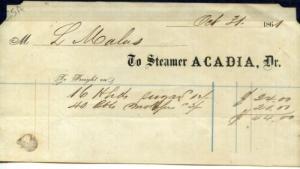 Oct 31. 1861
M. L Malus
To Steamer ACADIA, Dr.
To Freight on
16 Hhds sugar $ 24.00
40 Bbls 20.00
$ 44.00